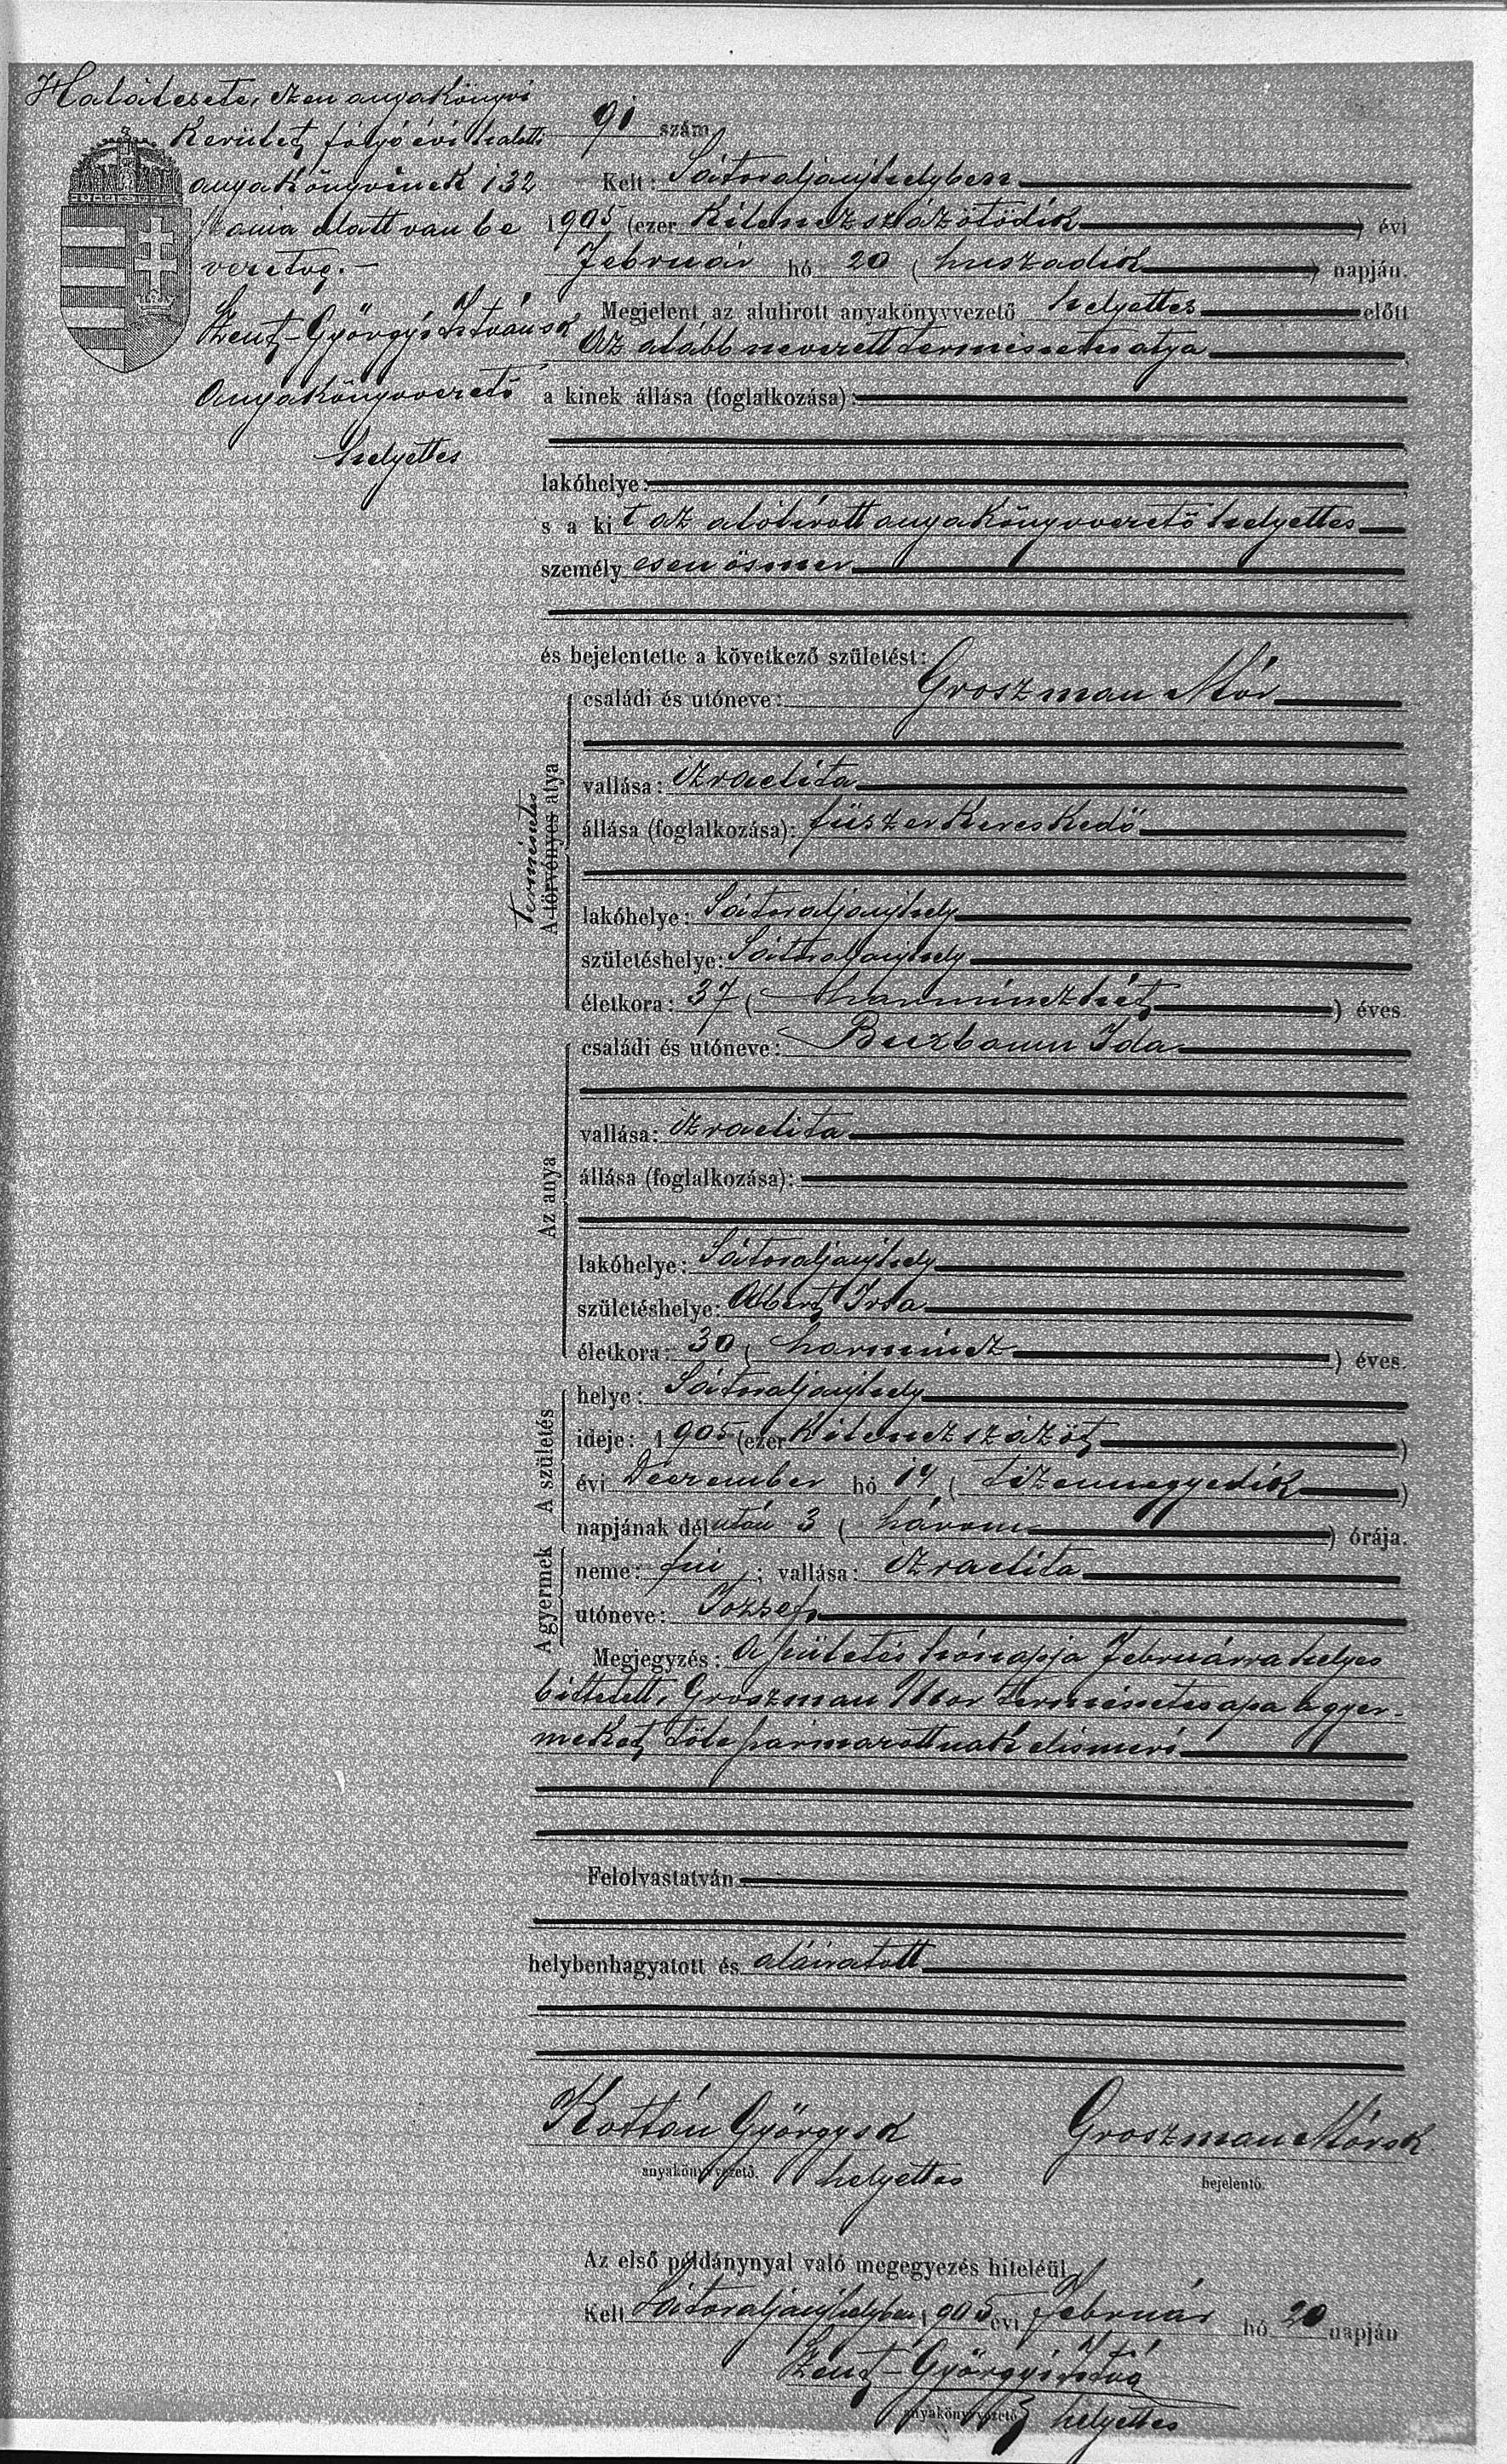 Halálesete, ezen anyakönyvi
kerület folyó évi halotti
anyakönyvének 132
száma alatt van be
vezetve. —
Szent-Györgyi István sk
Anyakönyvvezető
helyettes
91 szám
Kelt: Sátoraljaújhelyben
1905 (ezer kilenczszázötödik) évi
Február hó 20 (huszadik) napján.
Megjelent az alulirott anyakönyvvezető helyettes előtt
Az alább nevezett természetes atya
a kinek állása (foglalkozása):
lakóhelye:
s a kit az alólírott anyakönyvvezető helyettes
személyesen ösmer
és bejelentette a következő születést:
természetes
A törvényes atya
családi és utóneve: Groszman Mór
vallása: izraelita
állása (foglalkozása): fűszerkereskedő
lakóhelye: Sátoraljaújhely
születéshelye: Sátoraljaújhely
életkora: 37 (harminczhét) éves.
Az anya
családi és utóneve: Buxbaum Ida
vallása: izraelita
állása (foglalkozása):
lakóhelye: Sátoraljaújhely
születéshelye: Albert Irsa
életkora: 30 (harmincz) éves.
A születés
helye: Sátoraljaújhely
ideje: 1905 (ezer kilenczszázöt)
évi Deczember hó 14 (tizennegyedik)
napjának délután 3 (három) órája.
A gyermek
neme: fiú; vallása: izraelita
utóneve: József
Megjegyzés: A születés hónapja Februárra helyes
bittetett, Groszman Mór természetes apa a gyer-
meket tőle származottnak elismeri
Felolvastatván
helybenhagyatott és aláiratott
Kottán György sk helyettes
anyakönyvvezető.
Groszman Mór sk
bejelentő.
Az első példánynyal való megegyezés hiteléül
Kelt Sátoraljaújhelyben 1905 évi Február hó 20 napján
Szent-Györgyi István
anyakönyvvezető helyettes